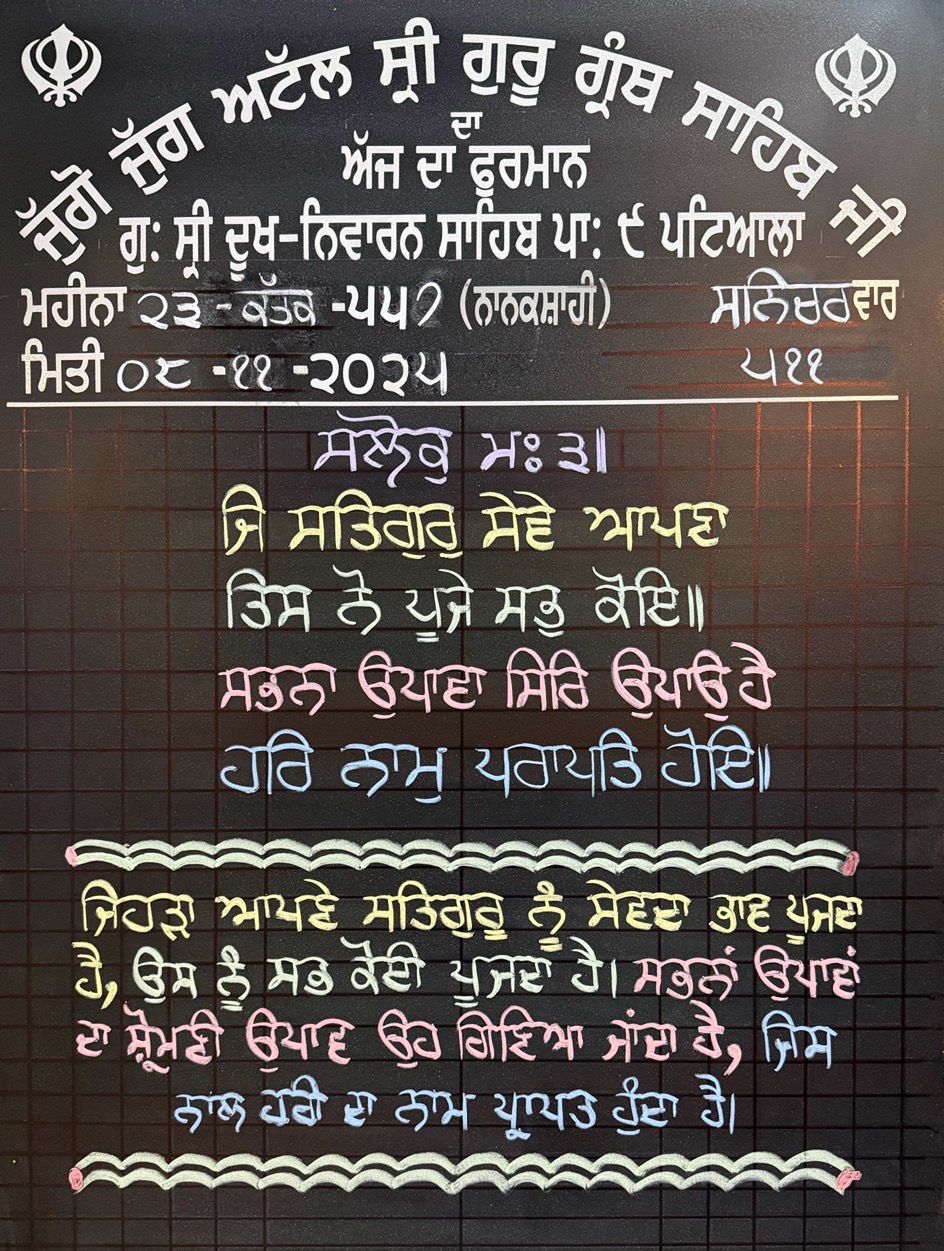 ਜੁੱਗੋ ਜੁੱਗ ਅਟੱਲ ਸ੍ਰੀ ਗੁਰੂ ਗ੍ਰੰਥ ਸਾਹਿਬ ਜੀ
ਦਾ
ਅੱਜ ਦਾ ਫੁਰਮਾਨ
ਗੁ: ਸ੍ਰੀ ਦੂਖ-ਨਿਵਾਰਨ ਸਾਹਿਬ ਪਾ: ੯ ਪਟਿਆਲਾ
ਮਹੀਨਾ ੨੩ - ਕੱਤਕ -੫੫੭ (ਨਾਨਕਸ਼ਾਹੀ) ਸਨਿਚਰਵਾਰ
ਮਿਤੀ ੦੮ -੧੧ -੨੦੨੫ ੫੧੧
ਸਲੋਕੁ ਮਃ ੩॥
ਜਿ ਸਤਿਗੁਰੁ ਸੇਵੇ ਆਪਣਾ
ਤਿਸ ਨੋ ਪੂਜੇ ਸਭੁ ਕੋਇ॥
ਸਭਨਾ ਉਪਾਵਾ ਸਿਰਿ ਉਪਾਉ ਹੈ
ਹਰਿ ਨਾਮੁ ਪਰਾਪਤਿ ਹੋਇ॥
ਜਿਹੜਾ ਆਪਣੇ ਸਤਿਗੁਰੂ ਨੂੰ ਸੇਵਦਾ ਭਾਵ ਪੂਜਦਾ
ਹੈ, ਉਸ ਨੂੰ ਸਭ ਕੋਈ ਪੂਜਦਾ ਹੈ। ਸਭਨਾਂ ਉਪਾਵਾਂ
ਦਾ ਸ਼੍ਰੋਮਣੀ ਉਪਾਵ ਉਹ ਗਿਣਿਆ ਜਾਂਦਾ ਹੈ, ਜਿਸ
ਨਾਲ ਹਰੀ ਦਾ ਨਾਮ ਪ੍ਰਾਪਤ ਹੁੰਦਾ ਹੈ।